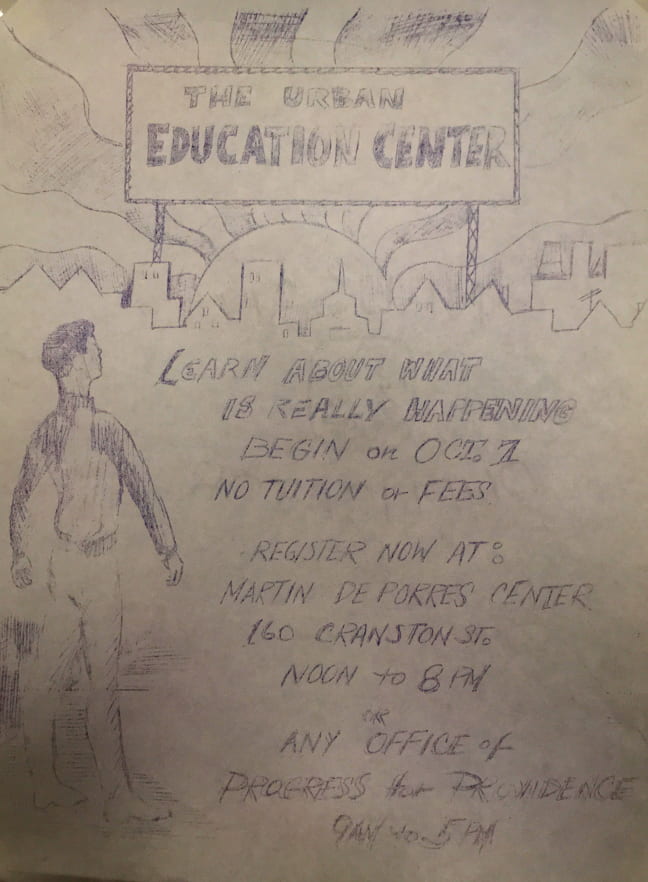 THE URBAN
EDUCATION CENTER
LEARN ABOUT WHAT
IS REALLY HAPPENING
BEGIN on OCT. 1
NO TUITION or FEES
REGISTER NOW AT:
MARTIN DE PORRES CENTER
160 CRANSTON ST.
NOON to 8 PM
OR
ANY OFFICE of
PROGRESS for PROVIDENCE
9AM to 5 PM